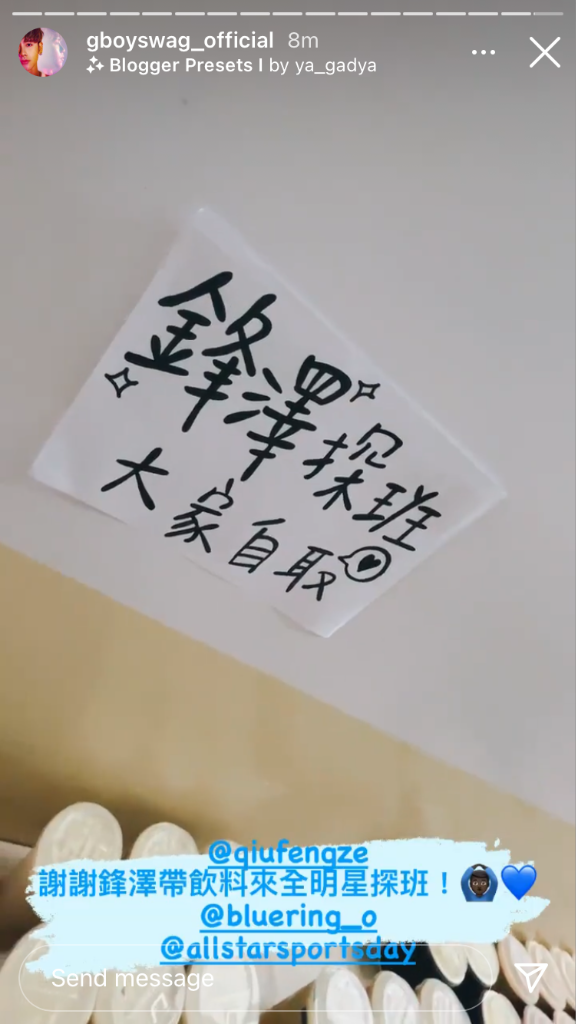 gboyswag_official 8m
Blogger Presets I by ya_gadya
鋒澤探班
大家自取
@qiufengze
謝謝鋒澤帶飲料來全明星探班！
@bluering_o
@allstarsportsday
Send message